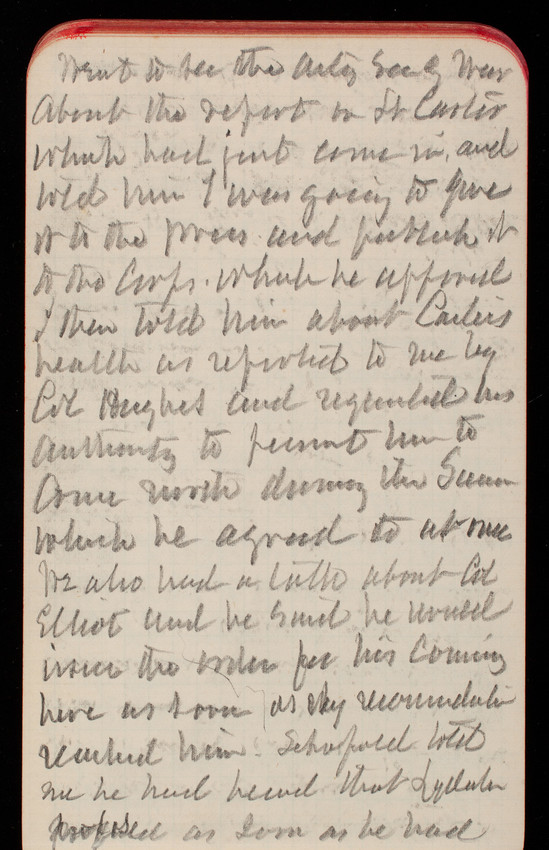 Went to see the Actg Secy War
about the report on Lt Carter
which had just come in, and
told him I was going to give
it to the press and publish it
to the Corps. which he approved
I then told him about
health as reported to me by
Col Hughes and requested his
authority to permit him to
come north during the
which he agreed to at once
We also had a talk about Col
Elliot and he said he would
issue the order for his coming
here as soon as my
reached him. Schofield told
me he had heard that
as soon as he had